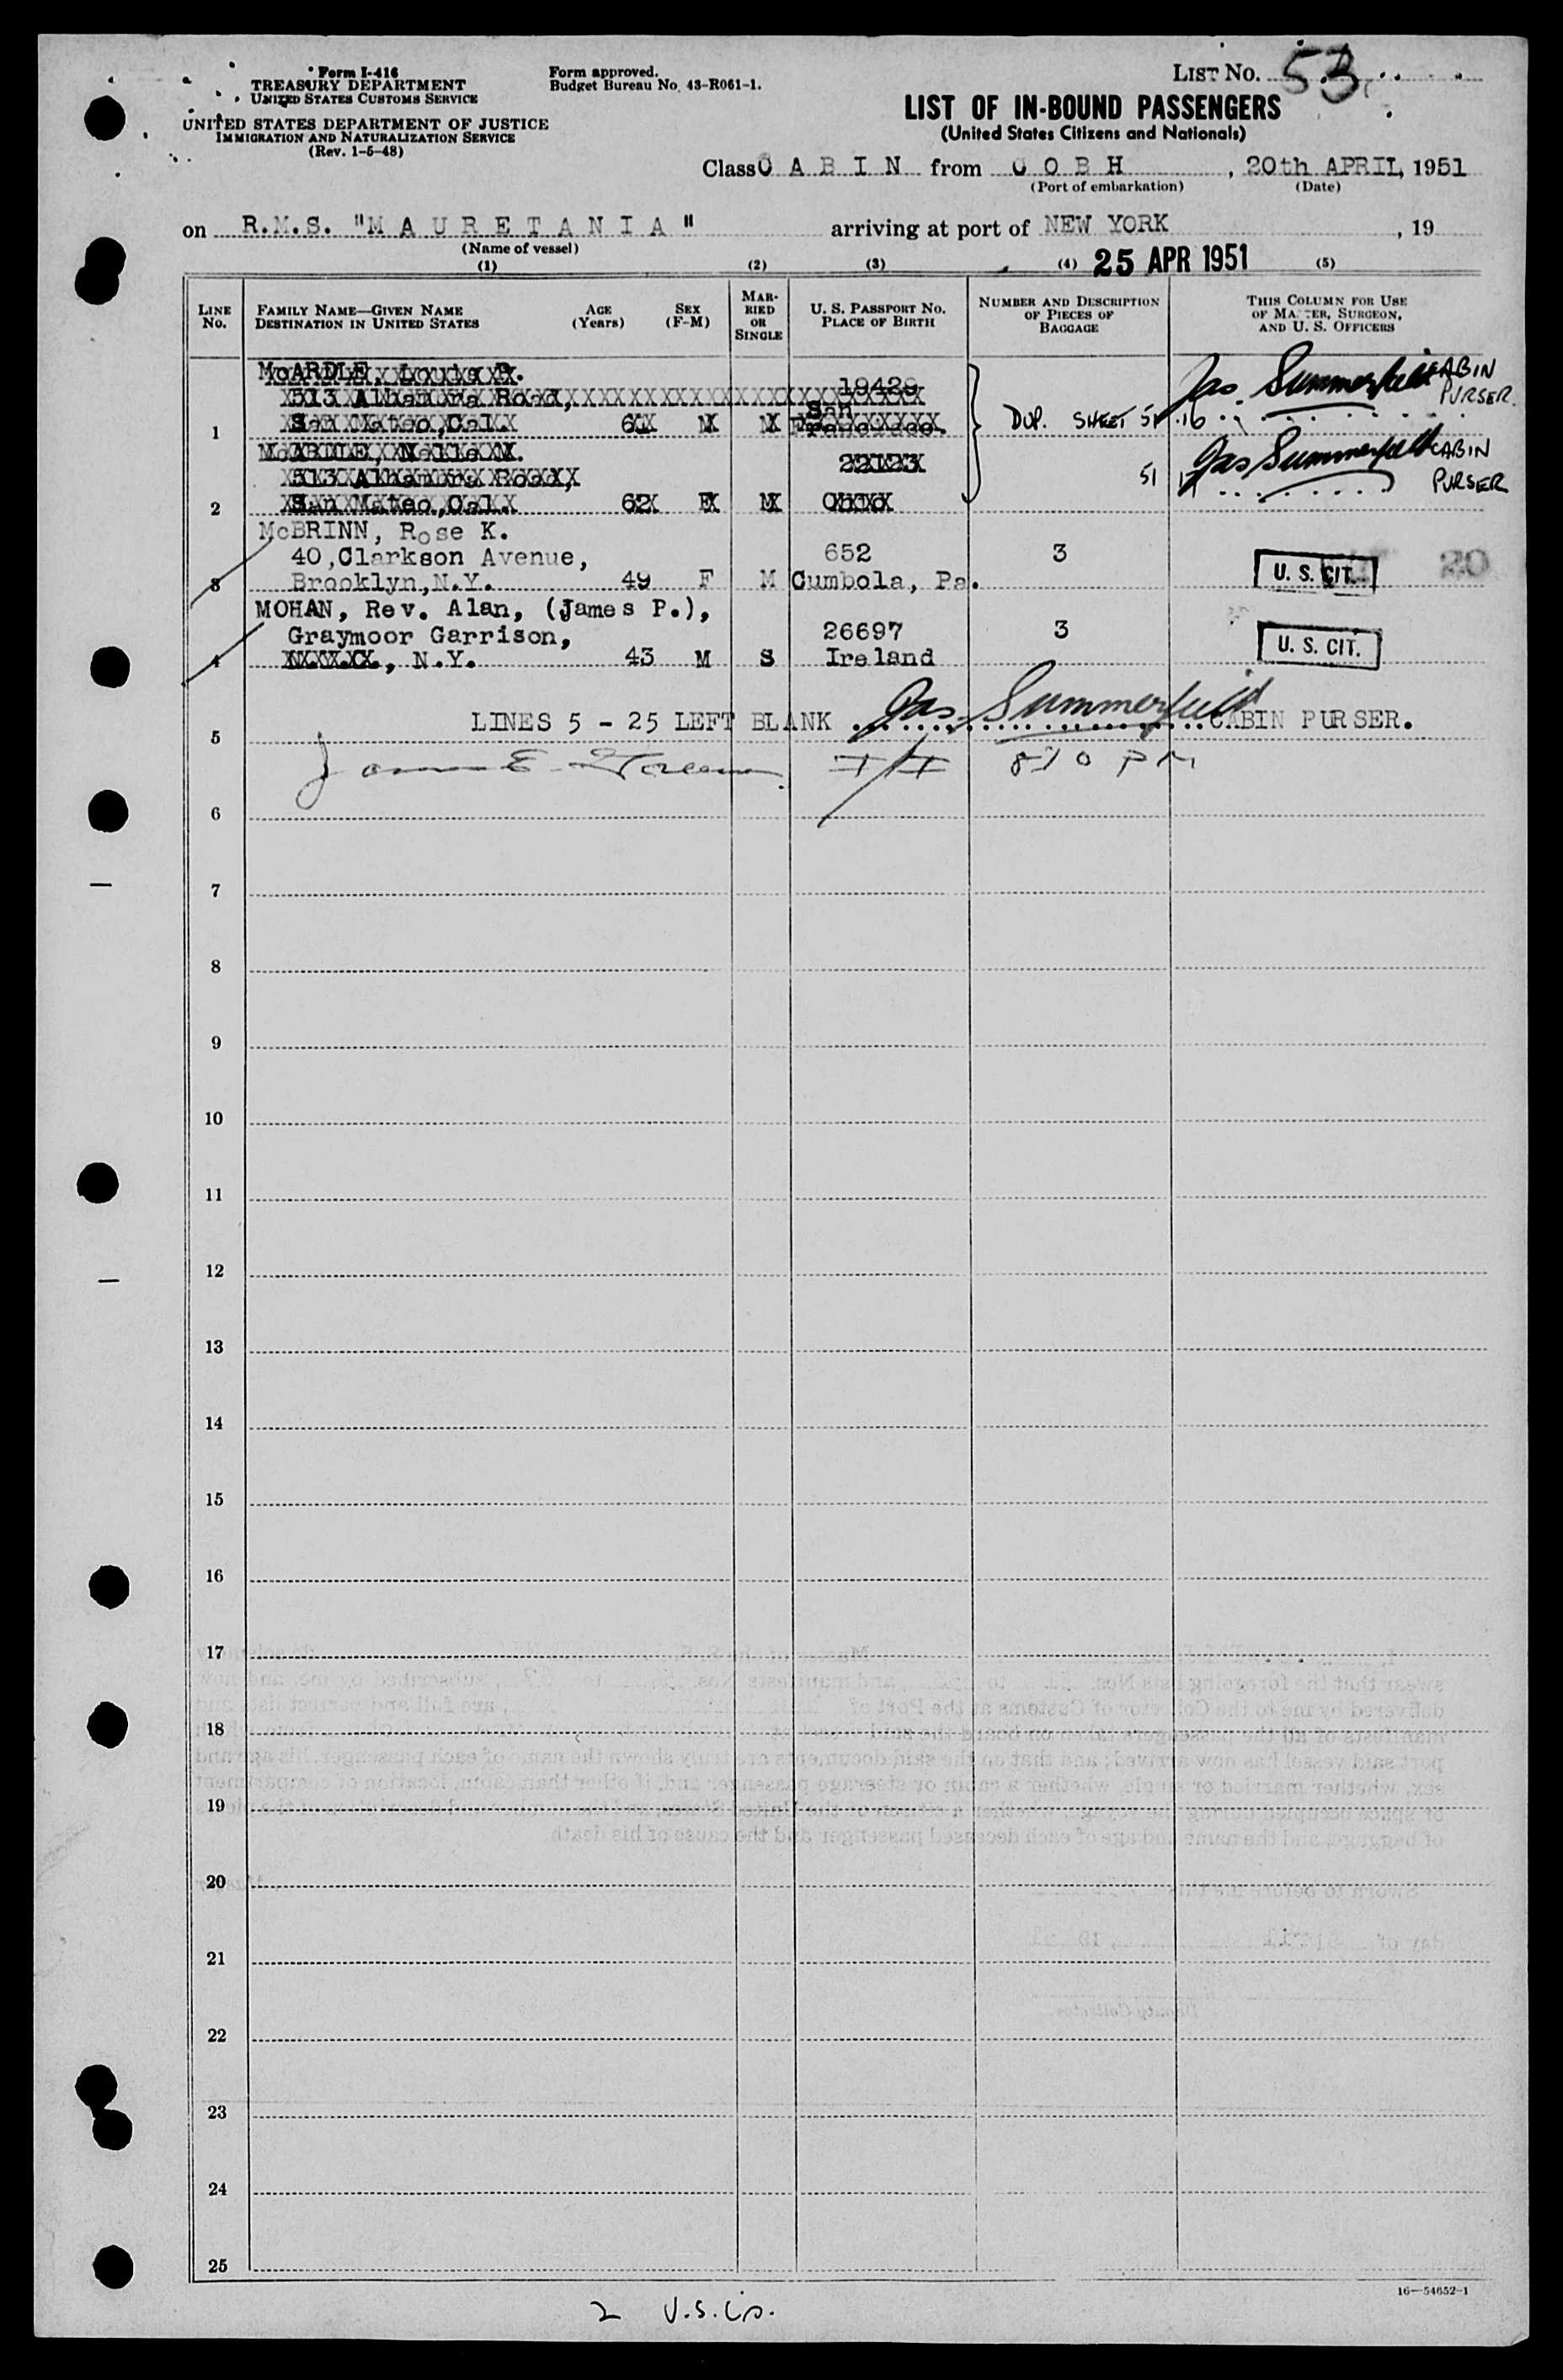 Form I-416
TREASURY DEPARTMENT
UNITED STATES CUSTOMS SERVICE
UNITED STATES DEPARTMENT OF JUSTICE
IMMIGRATION AND NATURALIZATION SERVICE
(Rev. 1-5-48)
Form approved.
Budget Bureau No. 43-R061-1.
LIST NO. 53
LIST OF IN-BOUND PASSENGERS
(United States Citizens and Nationals)
Class C A B I N from C O B H, 20th APRIL, 1951
(Port of embarkation) (Date)
on R.M.S. "M A U R E T A N I A" arriving at port of NEW YORK, 19
(Name of vessel)
25 APR 1951
(1) (2) (3) (4) (5)
LINE NO. FAMILY NAME—GIVEN NAME DESTINATION IN UNITED STATES AGE (Years) SEX (F-M) MARRIED OR SINGLE U. S. PASSPORT NO. PLACE OF BIRTH NUMBER AND DESCRIPTION OF PIECES OF BAGGAGE THIS COLUMN FOR USE OF MASTER, SURGEON, AND U. S. OFFICERS
McARDLE, Louis
513 Alhambra Road, 19429 Jas. Summerfield CABIN PURSER.
1 San Mateo, Cal. M M San Francisco. DUP. SHEET 51 16
McARDLE, Nelle M.
513 Alhambra Road, 22123 51 Jas Summerfield CABIN PURSER
2 San Mateo, Cal. 62 F M Ohio
McBRINN, Rose K.
40, Clarkson Avenue, 652 3 20
3 Brooklyn, N.Y. 49 F M Cumbola, Pa. U. S. CIT.
MOHAN, Rev. Alan, (James P.),
Graymoor Garrison, 26697 3
4 XXXXXX, N.Y. 43 M S Ireland U. S. CIT.
5 LINES 5 - 25 LEFT BLANK Jas. Summerfield CABIN PURSER.
James E. II 810 PM
6
7
8
9
10
11
12
13
14
15
16
17
18
19
20
21
22
23
24
25
16—54652-1
2 U.S.